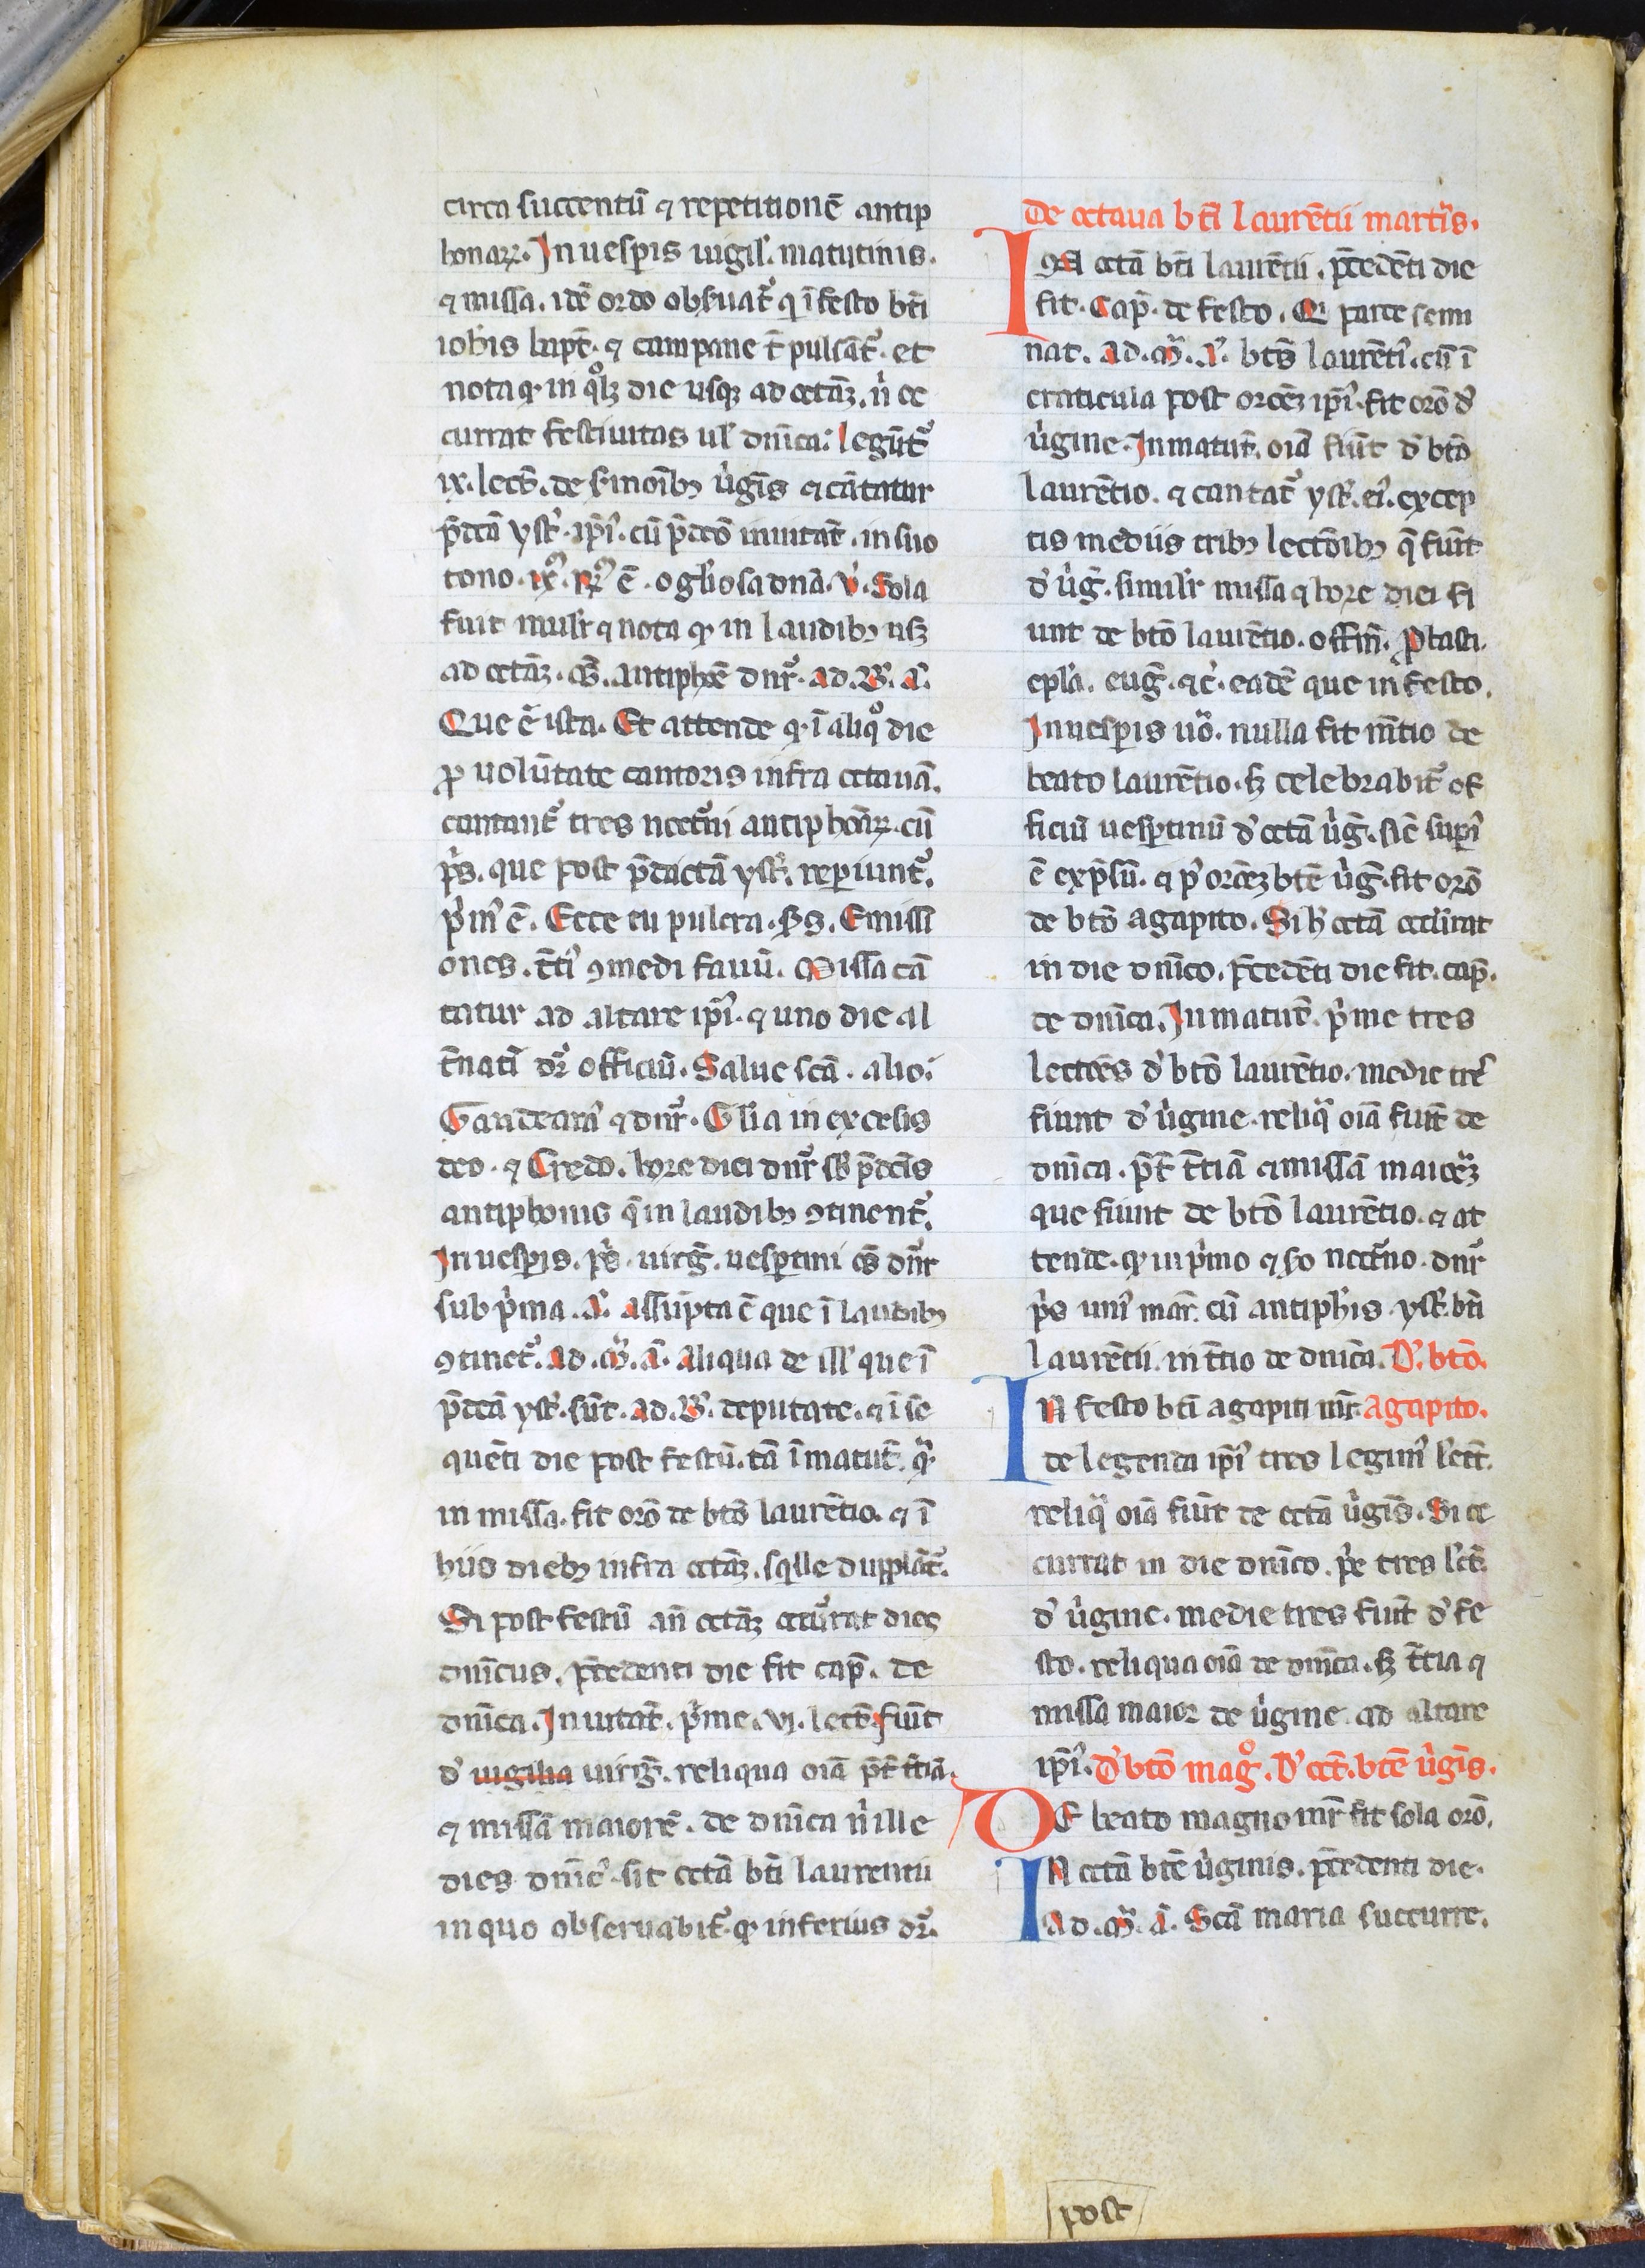 circa succentū ⁊ repetitionē antip
honaꝝ. In uesp̄is uigil'. matutinis.
⁊ missa. idē ordo obẜuat᷑ q̇ ī festo bt̄i
ioh̄is bapt̄. ⁊ campane t̄ pulsāt᷑. et
nota ꝙ in q̊lꝫ die usqꝫ ad octāꝫ. n̓ oc
currat festiuitas ul' dn̄ica: legūt᷑
ix. lect̄. de ẜmoībꝫ ůgīs ⁊ cātatur
p̄dcā yst̓. ip̄i᷒. cū p̄dcō inuitat̄. in suo
tono. ix᷒. ℟᷒ ē. o gl'iosa dn̄a. v̓. Sola
fuit mul'r ⁊ nota ꝙ in laudibꝫ usꝫ
ad octāꝫ. oēs. antiphōe dn̄r᷑. ad. B᷑. A᷑.
Que ē ista. Et attende ꝙ ī aliq̊ die
ꝓ uolūtate cantoris infra octauā.
cantant᷑ tres noct᷑ni antiphōaꝝ. cū
p̓s. que post p̄dictā yst̓. reperiunt᷑.
p̓m᷒ ē. Ecce tu pulcra. Sꝰs. Emissi
ones. t̄ti᷒ ꝯmedi fauū. Missa cā
tatur ad altare ip̄i᷒. ⁊ uno die al
t̄natī dr̄ officiū. Salue scā. alio.
Gaudeam᷒ ⁊ dn̄r᷑. Gl'ia in excelsis
deo. ⁊ Credo. hore diei dn̄r᷑ sb̄ p̄dcīs
antiphonis q̄ in laudibꝫ ꝯtinent᷑.
In uesp̄is. p̄s̓. uirḡ. uesp̄tini oēs dn̄r᷑
sub p̓ma. A᷑. Assūpta ē que ī laudibꝫ
ꝯtinet᷑. Ad. M᷑. A᷑. Aliqua de ill' que ī
p̄dcā yst̓. sūt. ad. B᷑. deputate. ⁊ ī se
quēti die post festū. tā ī matut̄. q̄ᷓ
in missa. fit orō de btō laurētio. ⁊ ī
hiis diebꝫ infra octāꝫ. sq̓lle dupplāt᷑.
Si post festū an̄ octāꝫ occur̄at dies
dn̄icus. p̄cedenti die fit cap̄. de
dn̄ica. Inuitat̄. p̓me. vj. lect̄. fiūt
d' uigilia uirḡ. reliqua oīa p̄t̄ t̄tiā.
⁊ missā maiorē. de dn̄ica n̓ ille
dies dn̄ic᷒. sit octā bt̄i laurentii
in quo obseruabit᷑. ꝙ inferius dr̄.
De octaua bt̄i laurētii martīs.
IN octā bt̄i laurētii. p̄cedēti die
fit. Cap̄. de festo. Qi parce semi
nat. Ad. M᷑. A᷑. btūs laurēti᷒. cū ī
craticula post orōeꝫ ip̄i᷒. fit orō d'
ůgine. In matut̄. oīa fiūt d' btō
laurētio. ⁊ cantat᷑ yst̓. ei᷒. excep
tis mediis tribꝫ lectōibꝫ q̄ fiūt
d' ůḡ. simil'r missa ⁊ hore diei fi
unt de btō laurētio. offm̄. Probasti.
epl'a. euḡ. ⁊c̓. eadē que in festo.
In uesp̄is uō. nulla fit m̄tio de
beato laurētio. sꝫ celebrabit᷑ of
ficiū uesp̄tinū d' octā ůḡ. sic̄ sup̄i᷒
ē exp̄sū. ⁊ p᷒ orōeꝫ btē ůḡ. fit orō
de btō agapito. Si h̓ octā occurrat
in die dn̄ico. p̄cedēti die fit. cap̄.
de dn̄ica. In matut̄. p̓me tres
lectōes d' btō laurētio. medie tre᷒
fiunt d' ůgine. reliq̄ oīa fiūt de
dn̄ica. p̄t̄ t̄tiā ⁊ missā maiorēꝫ
que fiunt de btō laurētio. ⁊ at
tende. ꝙ in p̓mo ⁊ sꝰo noct᷑no. dn̄r᷑
p̓s uni᷒ mar̄. cū antiph̄is. yst̓. bt̄i
laurētii. in t̄tio de dn̄ica. D'. btō.
IN festo bt̄i agapiti mr̄. agapito.
de legenda ip̄i᷒ tres legim᷒ lect̄.
reliq̄ oīa fiūt de octā ůgīs. Si oc
currat in die dn̄ico. p̓e tres lect̄.
d' ůgine. medie tres fiūt d' fe
sto. reliqua oīa de dn̄ica. sꝫ t̄tia ⁊
missa maior de ůgine. ad altare
ip̄i᷒. D' btō mag̊. D' oct̄. btē ůgīs.
DE beato magno mr̄ fit sola orō.
IN octā btē ůginis. p̄cedenti die.
Ad. M᷑. A᷑. Scā maria succurre.
post